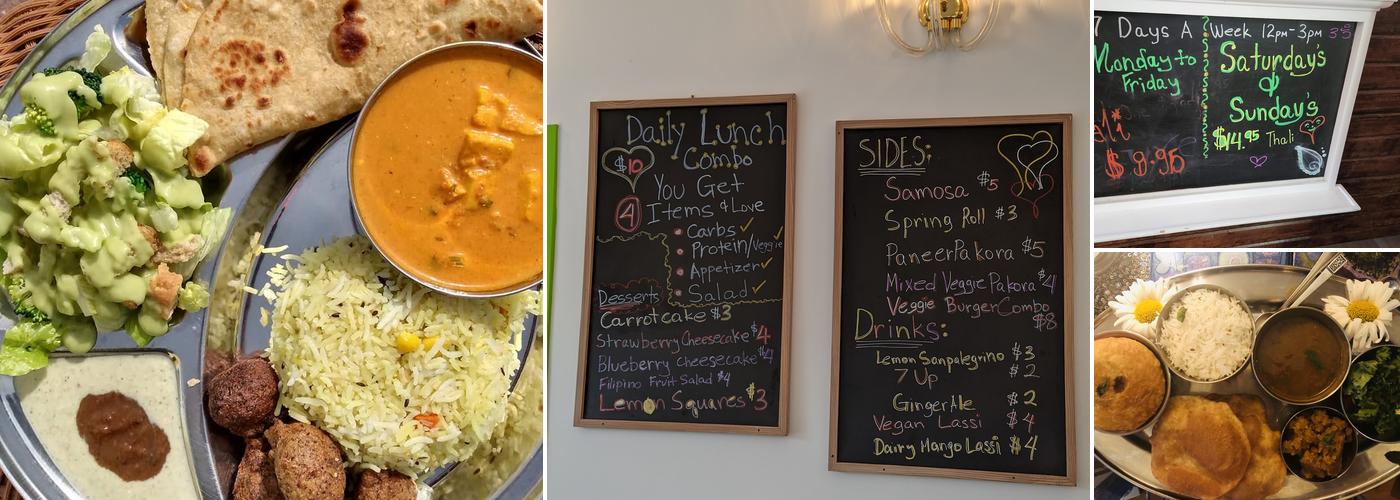 Daily Lunch
Combo
$10
You Get
4 Items & Love
Carbs ✓
Protein/Veggie ✓
Appetizer ✓
Salad ✓
Desserts
Carrotcake $3
Strawberry Cheesecake $4
Blueberry Cheesecake $4
Filipino Fruit Salad $4
Lemon Squares $3
SIDES:
Samosa $5
Spring Roll $3
Paneer Pakora $5
Mixed Veggie Pakora $4
Veggie Burger Combo
$8
Drinks:
Lemon Sanpalegrino $3
7 Up $2
Ginger Ale $2
Vegan Lassi $4
Dairy Mango Lassi $4
7 Days A Week 12pm-3pm
Monday to
Friday
$9.95
Saturday's
&
Sunday's
$14.95 Thali